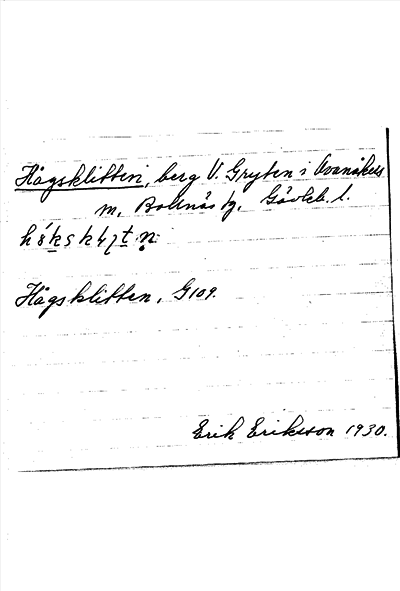 Hågsklitten, berg V. Gryten i Ovanåkers
m, Bollnäs tg, Gävleb. l.
Hågsklitten, G109.
Erik Eriksson 1930.